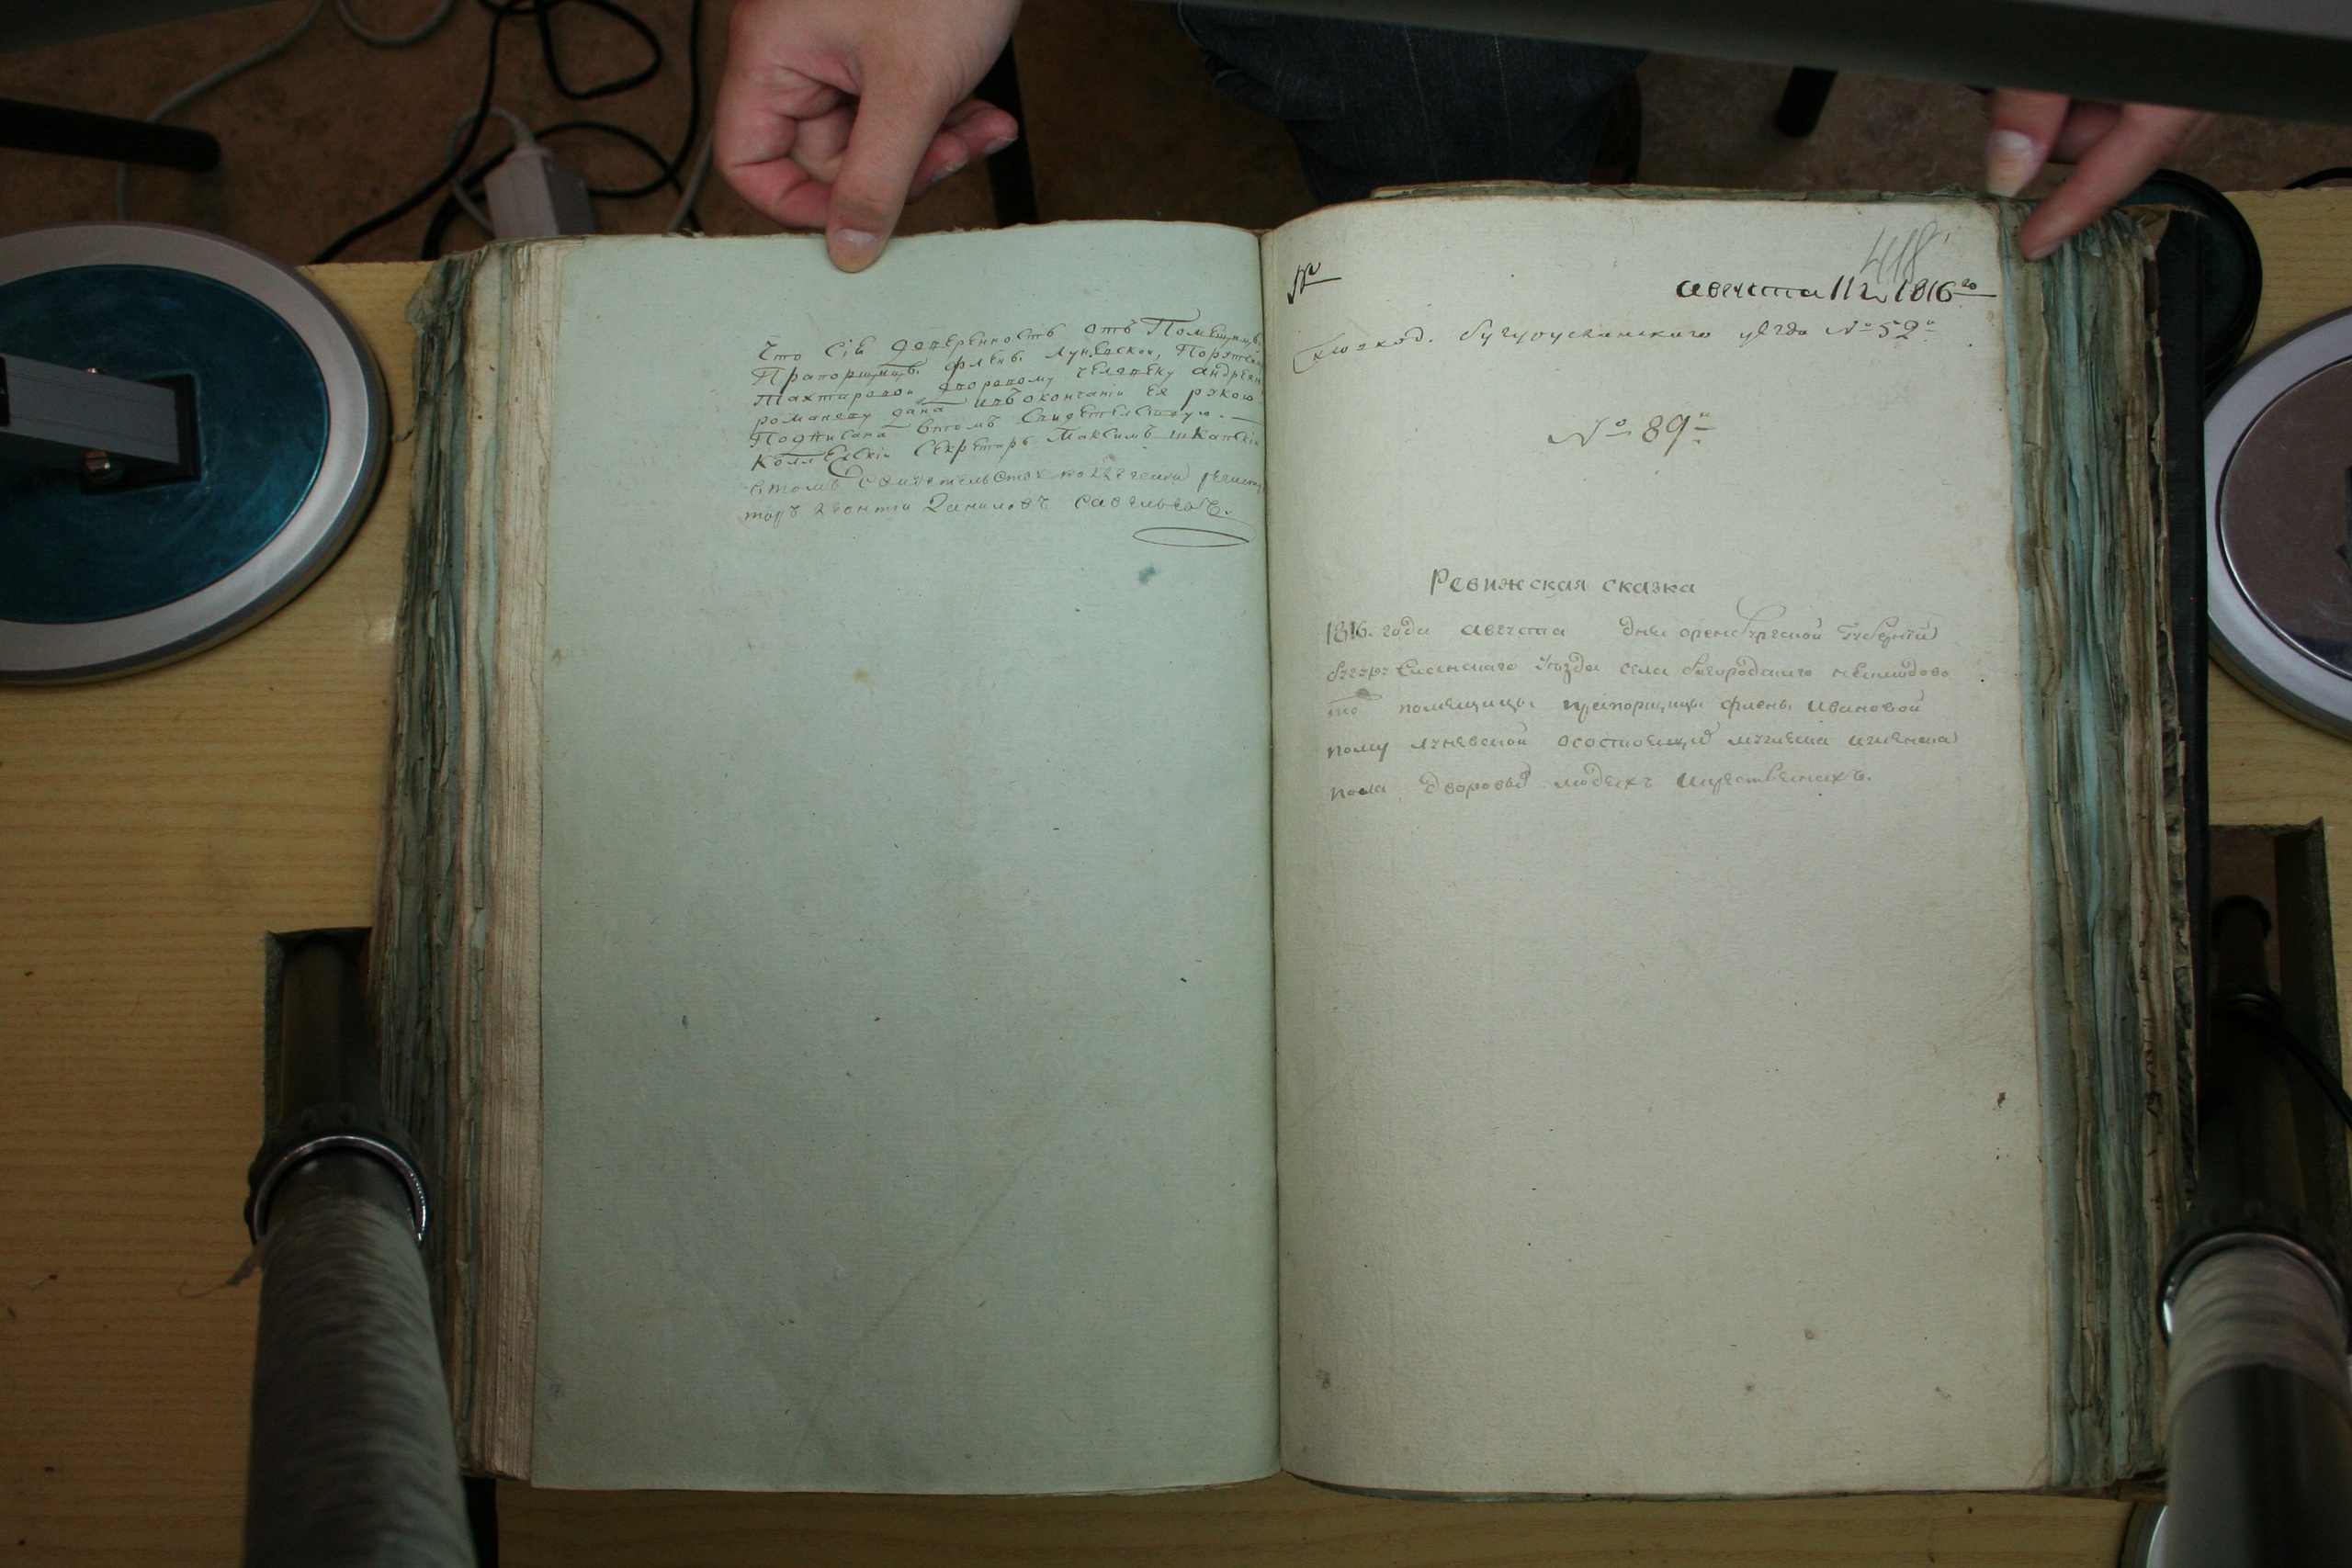 Что сіе доверенность отъ Помещицы
Прапорщицы Флены Луневской, Порутчицы
Тахтаровой дворовому человеку Андреяну
романову дана въ томъ
Подписана въ томъ Свидетельствую.
Коллежскій Секретарь Максимъ
втомъ Свидетельствовалъ
Леонтій Даниловъ Савельевъ.
№
418
августа 11 1816го
бугурусланскаго уезда № 52й
№ 89й
Ревижская сказка
1816. года августа дня оренбургской Губерніи
уезда села богородскаго
то помещицы прапорщицы Флены Ивановой
луневской осостоящихъ мужеска иженска
пола дворовыхъ людехъ